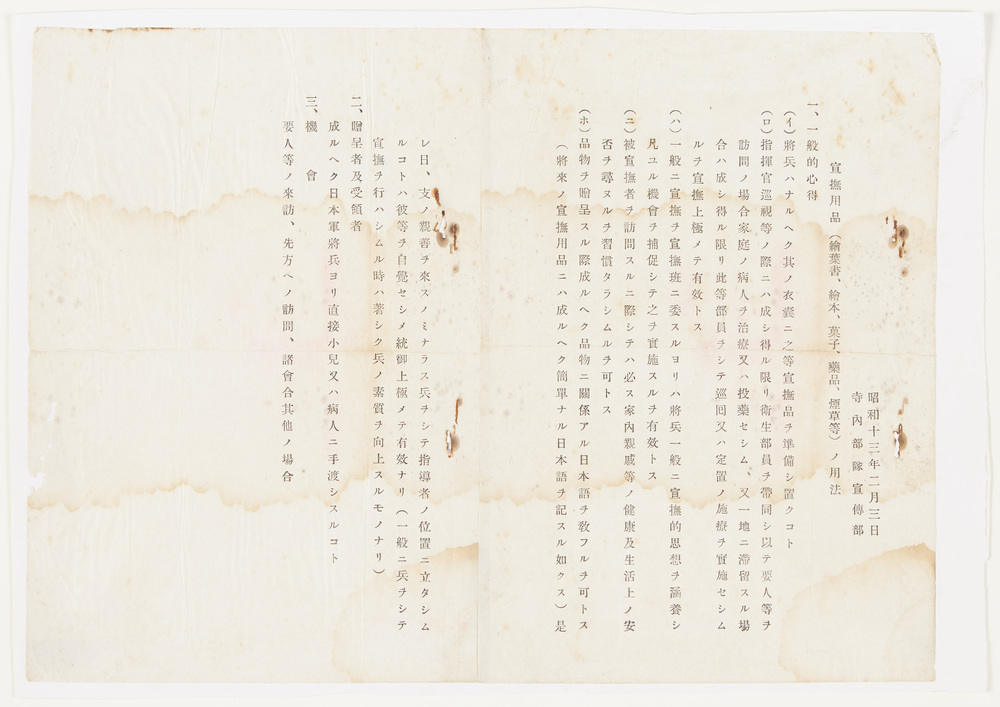 昭和十三年二月三日
寺內部隊宣傳部
宣撫用品（繪葉書、繪本、菓子、藥品、煙草等）ノ用法
一、一般的心得
（イ）將兵ハナルヘク其ノ衣囊ニ之等宣撫品ヲ準備シ置クコト
（ロ）指揮官巡視等ノ際ニハ成シ得ル限リ衛生部員ヲ帶同シ以テ要人等ヲ
訪問ノ場合家庭ノ病人ヲ治療又ハ投藥セシム、又一地ニ滯留スル場
合ハ成シ得ル限リ此等部員ヲシテ巡囘又ハ定置ノ施療ヲ實施セシム
ルヲ宣撫上極メテ有效トス
（ハ）一般ニ宣撫ヲ宣撫班ニ委スルヨリハ將兵一般ニ宣撫的思想ヲ涵養シ
凡ユル機會ヲ捕促シテ之ヲ實施スルヲ有效トス
（ニ）被宣撫者ヲ訪問スルニ際シテハ必ス家內親戚等ノ健康及生活上ノ安
否ヲ尋ヌルヲ習慣タラシムルヲ可トス
（ホ）品物ヲ贈呈スル際成ルヘク品物ニ關係アル日本語ヲ敎フルヲ可トス
（將來ノ宣撫用品ニハ成ルヘク簡單ナル日本語ヲ記スル如クス）是
レ日、支ノ親善ヲ來スノミナラス兵ヲシテ指導者ノ位置ニ立タシム
ルコトハ彼等ヲ自覺セシメ統御上極メテ有效ナリ（一般ニ兵ヲシテ
宣撫ヲ行ハシムル時ハ著シク兵ノ素質ヲ向上スルモノナリ）
二、贈呈者及受領者
成ルヘク日本軍將兵ヨリ直接小兒又ハ病人ニ手渡シスルコト
三、機會
要人等ノ來訪、先方ヘノ訪問、諸會合其他ノ場合